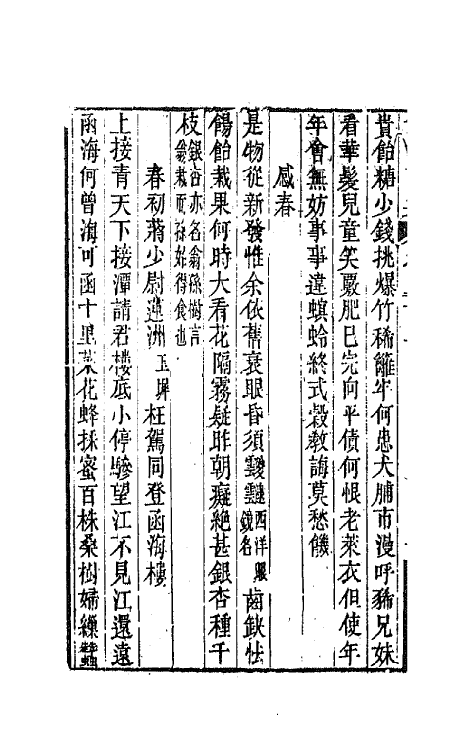 貴飴糖少錢挑爆竹稀籬牢何患犬脯市漫呼豨兄妹
看華髮兒童笑嚴肥已完向平債何恨老萊衣但使年
年會無妨事事違螟蛉終式穀教誨莫愁饑
感春
是物從新發惟余依舊衰眼昏須靉靆西洋眼鏡名齒缺怯
餳飴栽果何時大看花隔霧疑昨朝癡絕甚銀杏種千
枝銀杏亦名翁孫樹言翁栽而孫始得食也
春初蔣少尉蓮洲玉墀枉駕同登函海樓
上接青天下接潭請君樓底小停驂望江不見江還遠
函海何曾海可函十里菜花蜂採蜜百株桑樹婦繰蠶